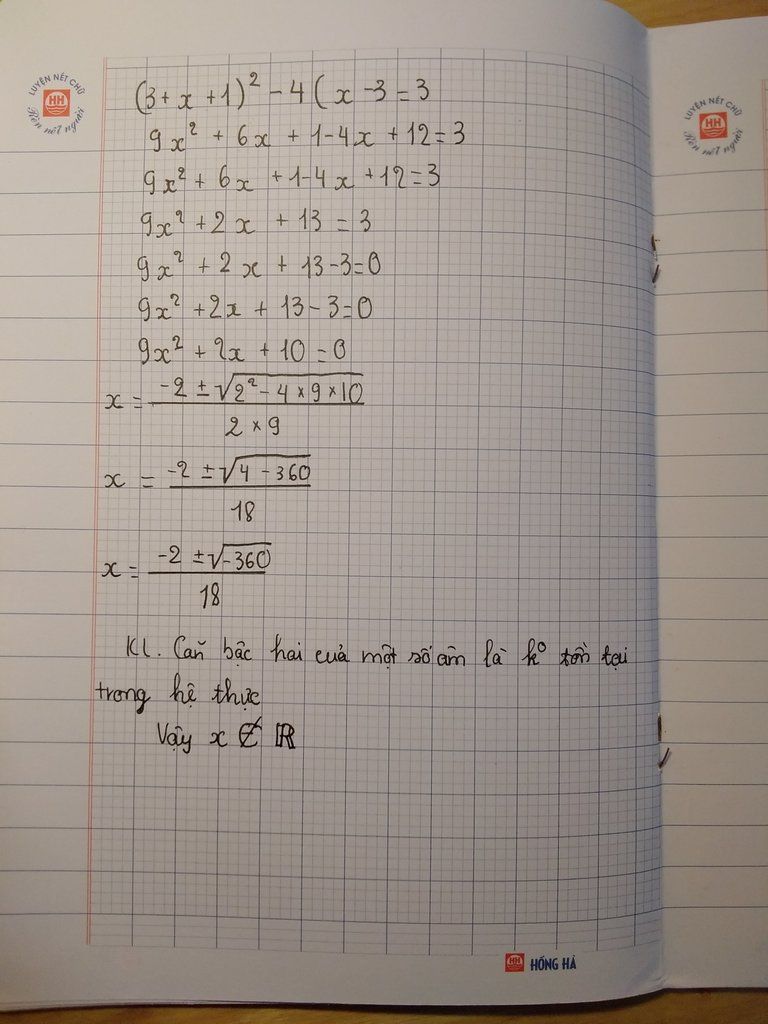 LUYỆN NÉT CHỮ
HH
Rèn nết người
LUYỆN NÉT CHỮ
HH
Rèn nết người
(3+ x +1)² - 4( x -3 = 3
9x² + 6x + 1-4x +12=3
9x² + 6x +1-4x +12=3
9x² +2x +13 = 3
9x² +2x + 13-3=0
9x² +2x + 13-3=0
9x² +2x +10 =0
x = (-2 ± √(2² - 4 × 9 × 10)) / (2 × 9)
x = (-2 ± √(4 - 360)) / 18
x = (-2 ± √(-360)) / 18
KL. Căn bậc hai cuả một số âm là kº tồn tại
trong hệ thực
Vậy x ∉ ℝ
HH HỒNG HÀ